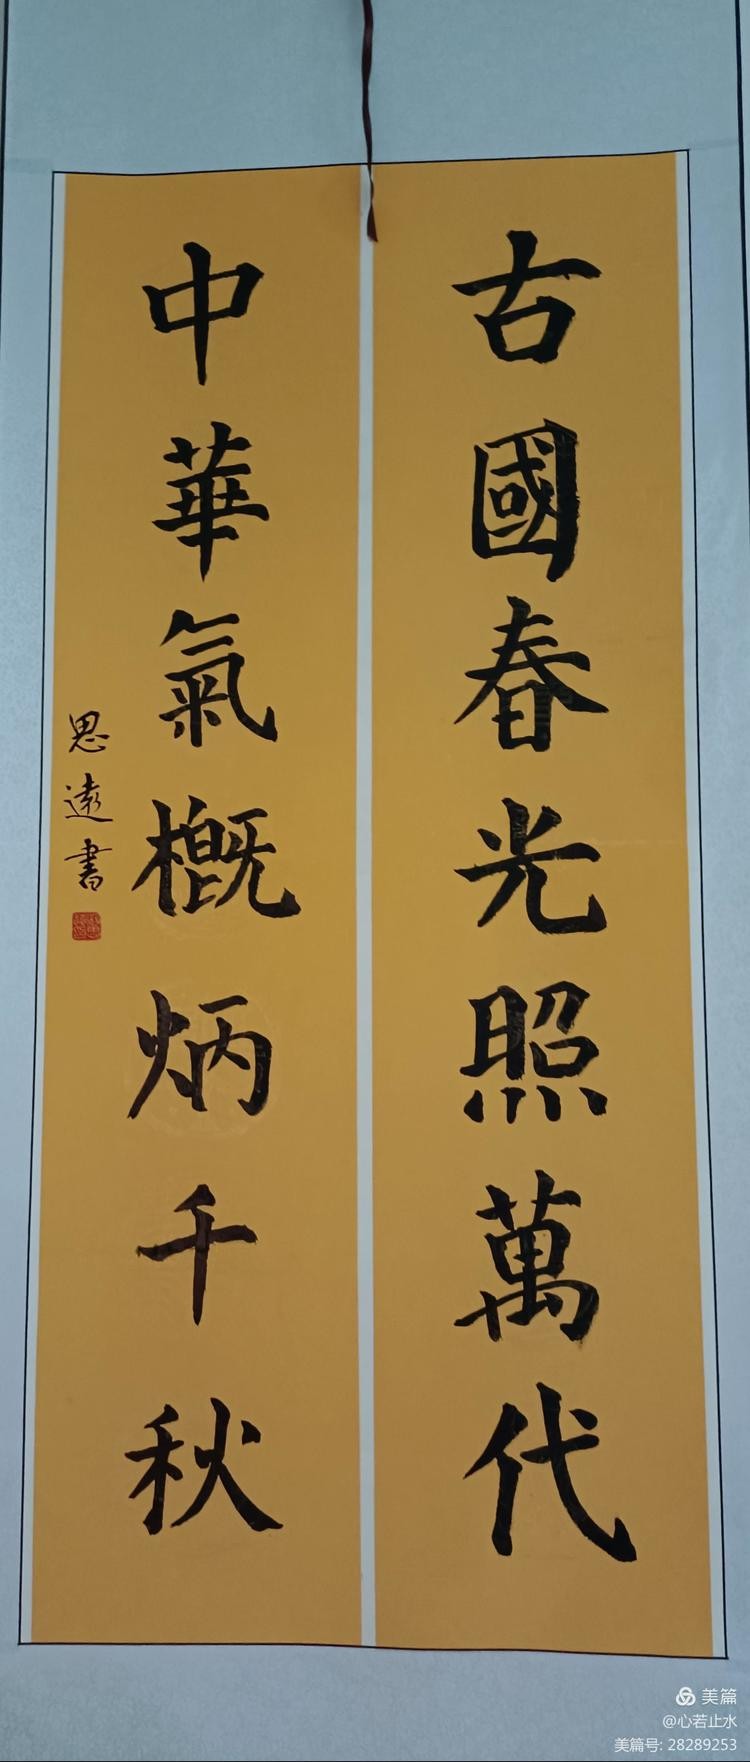 古國春光照萬代
中華氣概炳千秋
思遠書
美篇
@心若止水
美篇号: 28289253